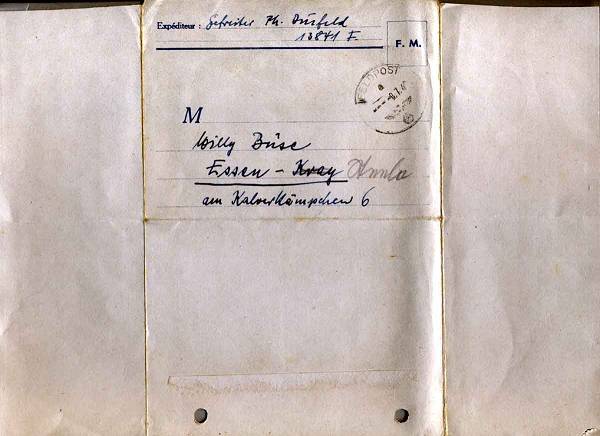 Expéditeur : Gefreiter Ph. Dusfeld
13841 F.
F. M.
FELDPOST
a
M
Willy Büse
Essen - Kray
am Kalverkämpchen 6